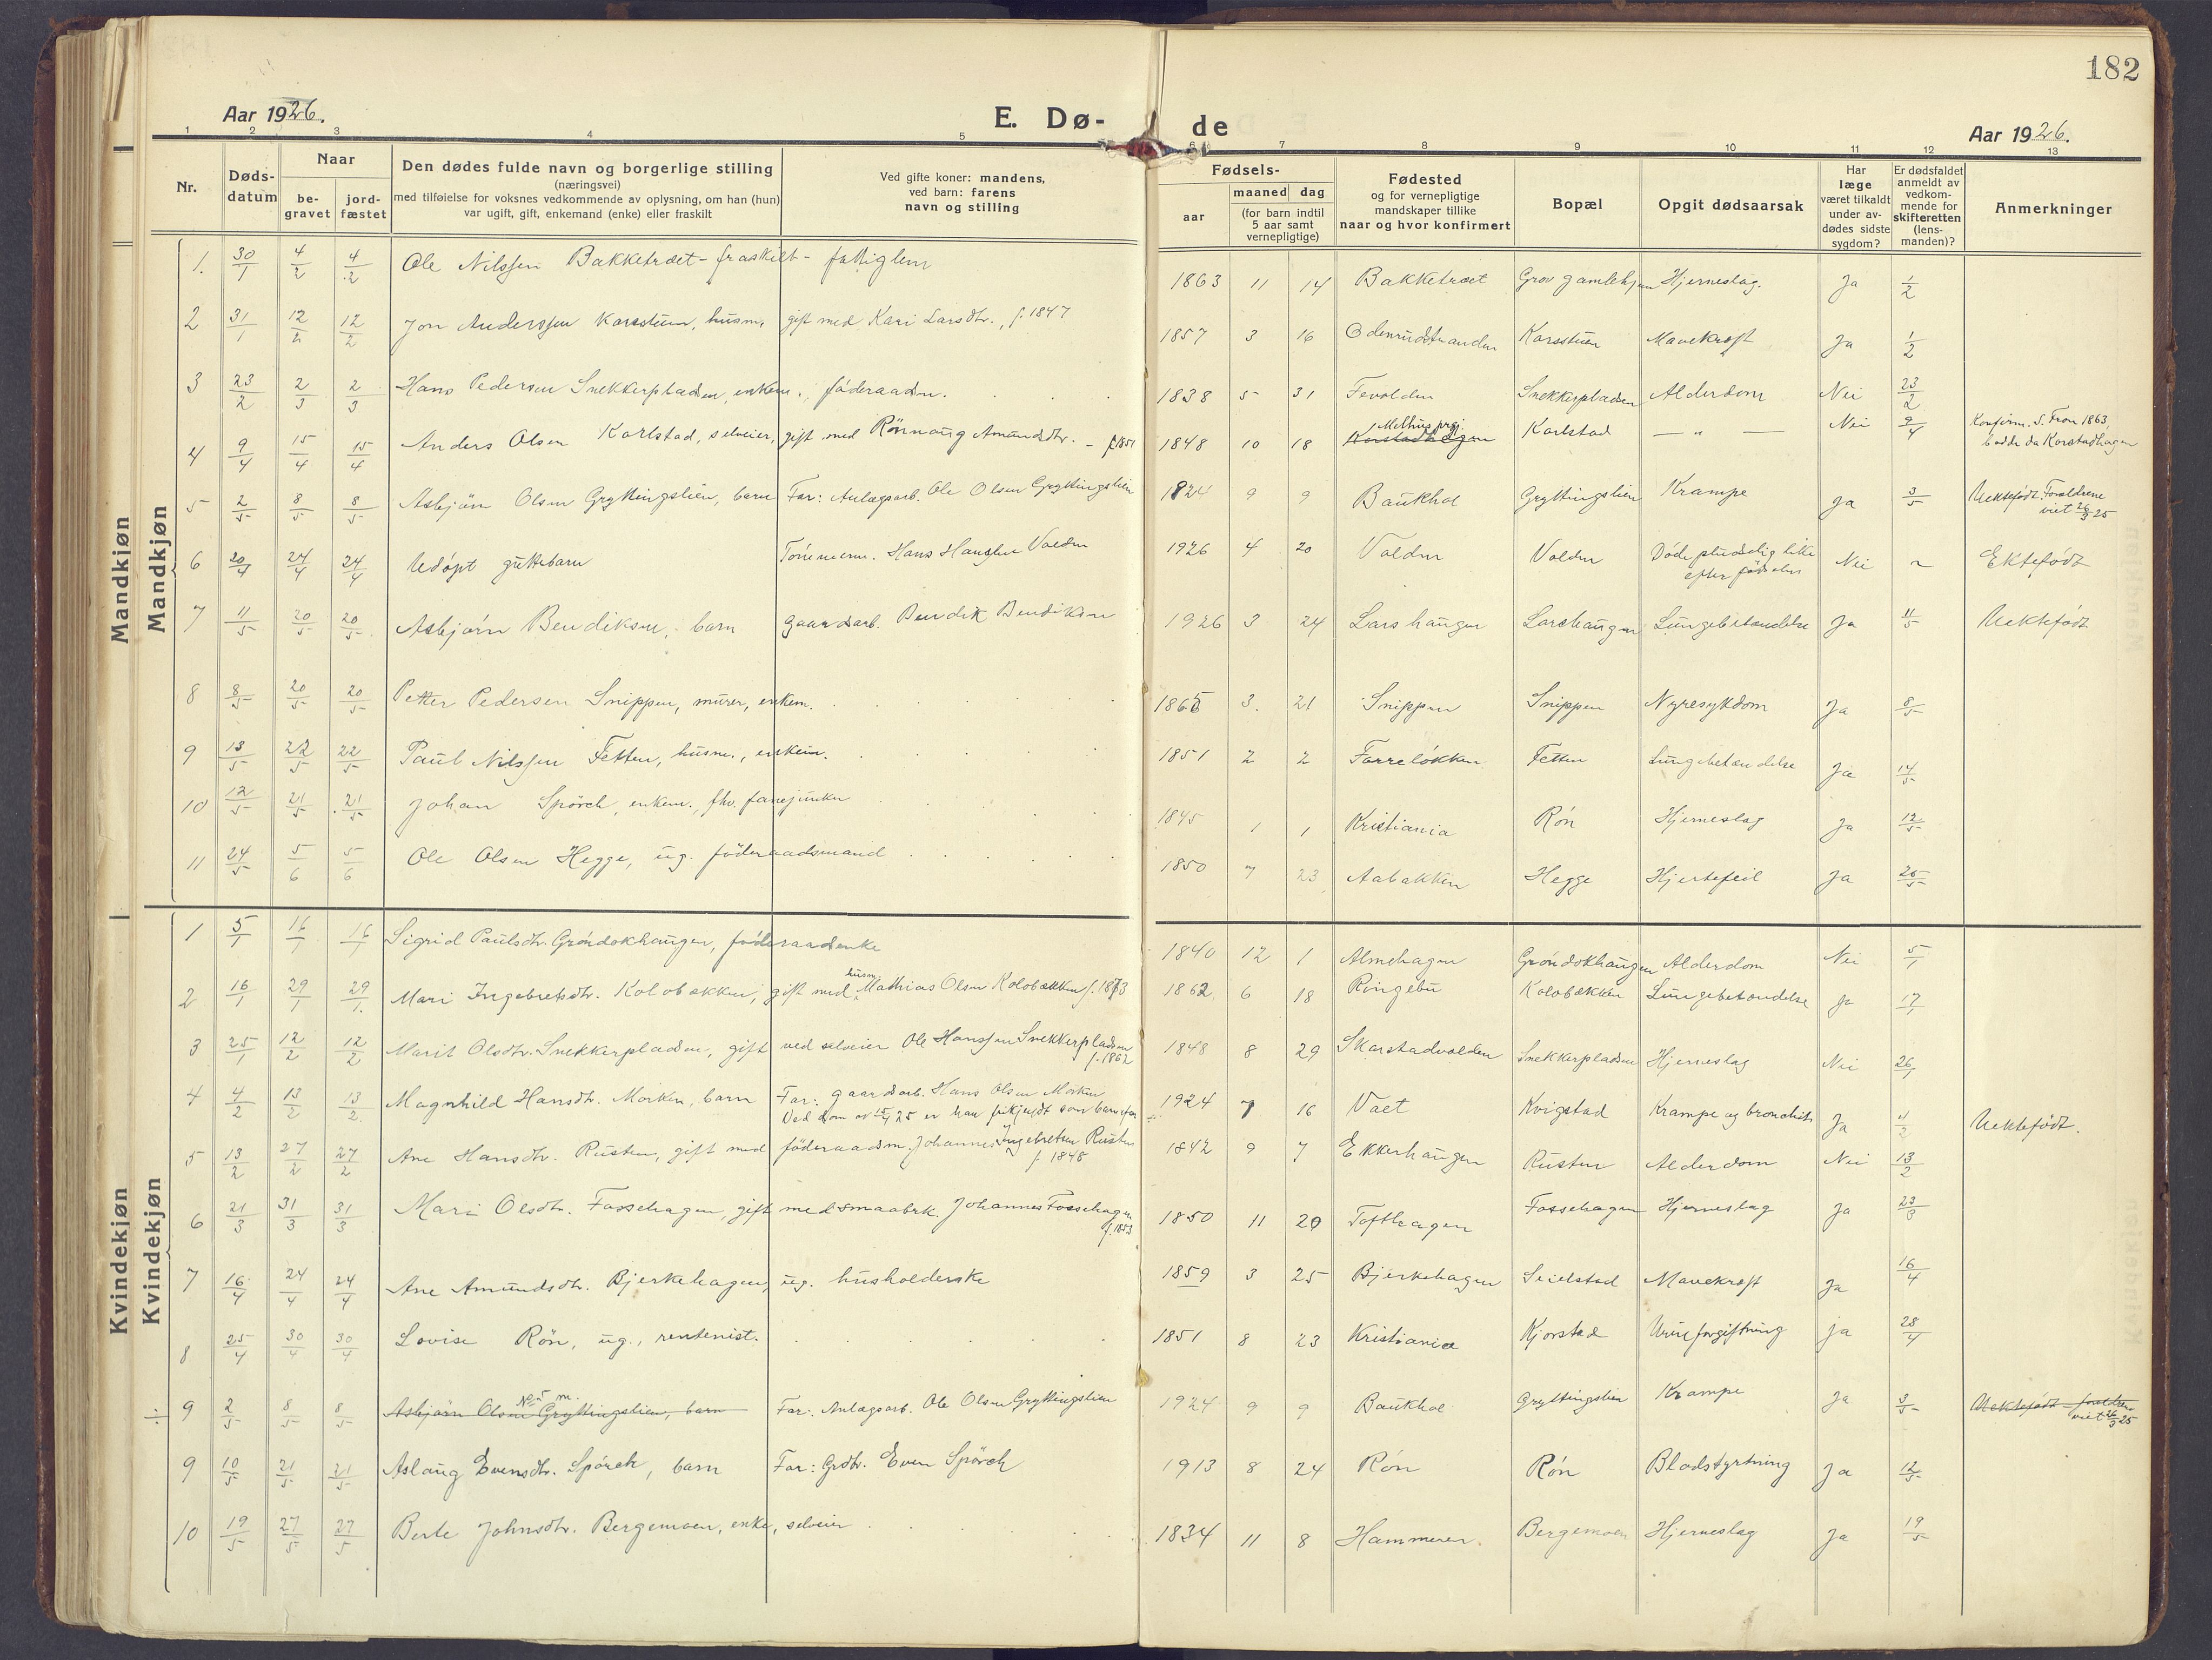 182
Aar 1926.
E. Dø-
de
Aar 1926.
1 2 3 4 5 6 7 8 9 10 11 12 13
Nr.
Døds-
datum
Naar
be-
gravet
jord-
fæstet
Den dødes fulde navn og borgerlige stilling
(næringsvei)
med tilføielse for voksnes vedkommende av oplysning, om han (hun)
var ugift, gift, enkemand (enke) eller fraskilt
Ved gifte koner: mandens,
ved barn: farens
navn og stilling
Fødsels-
aar
maaned dag
(for barn indtil
5 aar samt
vernepligtige)
Fødested
og for vernepligtige
mandskaper tillike
naar og hvor konfirmert
Bopæl
Opgit dødsaarsak
Har
læge
været tilkaldt
under av-
dødes sidste
sygdom?
Er dødsfaldet
anmeldt av
vedkom-
mende for
skifteretten
(lens-
manden)?
Anmerkninger
Mandkjøn
Mandkjøn
1. 30/1 4/2 4/2 Ole Nilssen Bakketræet - fraskilt - fattiglem 1863 11 14 Bakketræet Grov gamlehjem Hjerneslag. Ja 1/2
2 31/1 12/2 12/2 Jon Anderssen Karsstuen, husm, gift med Kari Larsdtr., f. 1847 1857 3 16 Odenrudstranden Karsstuen Mavekræft Ja 1/2
3 23/2 2/3 2/3 Hans Pedersen Snekkerpladsen, enkem., föderaadm. 1838 5 31 Fevolden Snekkerpladsen Alderdom Nei 23/2
4 9/4 15/4 15/4 Anders Olsen Korlstad, selveier, gift med Rönnaug Amundsdtr. - f. 1851 1848 10 18 Melhus prgj. Korstadhagen Karlstad — " — Nei 9/4 Konfirm. S. Fron 1863, bodde da Korstadhagen
5 2/5 8/5 8/5 Asbjörn Olsen Gryttingslien, barn Far: Anlægsarb. Ole Olsen Gryttingslien 1924 9 9 Baukhol Gryttingslien Krampe Ja 3/5 Uektefödt. Forældrene viet 26/3 25
6 20/4 24/4 24/4 Udöpt guttebarn Tömmerm. Hans Hanssen Volden 1926 4 20 Volden Volden Döde pludselig like efter födselen Nei ~ Ektefödt
7 11/5 20/5 20/5 Asbjörn Bendiksen, barn gaardsarb. Bendik Bendiksen 1926 3 24 Larshaugen Larshaugen Lungebetændelse Ja 11/5 Uektefödt
8 8/5 20/5 20/5 Petter Pedersen Snippen, murer, enkem. 3. 21 Snippen Snippen Nyresykdom Ja 8/5
9 13/5 22/5 22/5 Paul Nilssen Fetten, husm., enkem. 1851 2 2 Farrelökken Fetten Lungebetændelse Ja 14/5
10 12/5 21/5 21/5 Johan Spörck, enkem., fhv. fanejunker 1845 1 1 Kristiania Rön Hjerneslag Ja 12/5
11 24/5 5/6 5/6 Ole Olsen Hegge, ug. föderaadsmand 1850 7 23 Aabakken Hegge Hjertefeil Ja 26/5
Kvindekjøn
Kvindekjøn
1 5/1 16/1 16/1 Sigrid Paulsdtr. Gröndokhaugen, föderaadsenke 1840 12 1 Almehagen Gröndokhaugen Alderdom Nei 5/1
2 16/1 29/1 29/1. Mari Ingebretsdtr. Kolobækken, gift med husm. Mathias Olsen Kolobækken f. 1873 1862 6 18 Ringebu Kolobækken Lungebetændelse Ja 17/1
3 25/1 12/2 12/2 Marit Olsdtr. Snekkerpladsen, gift ved selveier Ole Hanssen Snekkerpladsen f. 1862 1848 8 29 Skarstadvolden Snekkerpladsen Hjerneslag Nei 26/1
4 4/2 13/2 13/2. Magnhild Hansdtr. Morken, barn Far: gaardsarb. Hans Olsen Morken Ved dom av 25 er han frikjendt som barnefar 1924 7 16 Vaet Kvigstad Krampe og bronchit Ja 4/2 Uektefödt.
5 13/2 27/2 27/2 Ane Hansdtr. Rusten, gift med föderaadsm. Johannes Ingebretsen Rusten f. 1848 1842 9 7 Ekkerhaugen Rusten Alderdom Nei 13/2
6 21/3 31/3 31/3 Mari Olsdtr. Fossehagen, gift med smaabrk. Johannes Fossehagen f. 1853 1850 11 20 Tofthagen Fossehagen Hjerneslag Ja 23/3
7 16/4 24/4 24/4 Ane Amundsdtr. Bjerkehagen, ug. husholderske 1859 3 25 Bjerkehagen Seielstad Mavekræft Ja 16/4
8 25/4 30/4 30/4 Lovise Rön, ug., rentenist. 1851 8 23 Kristiania Kjorstad Urinforgiftning ja 28/4
÷ 9 2/5 8/5 8/5 No 5 m. Asbjörn Olsen Gryttingslien, barn Far: Anlægsarb. Ole Olsen Gryttingslien 1924 9 9 Baukhol Gryttingslien Krampe Ja 3/5 Uektefödt forældrene viet 26/3 25
9 10/5 21/5 21/5 Aslaug Evensdtr. Spörck, barn Far: Grdbr. Even Spörck 1913 8 24 Rön Rön Blodstyrtning Ja 12/5
10 19/5 27/5 27/5 Berte Johnsdtr. Bergemoen, enke, selveier 1834 11 8 Hammeren. Bergemoen Hjerneslag Ja 19/5